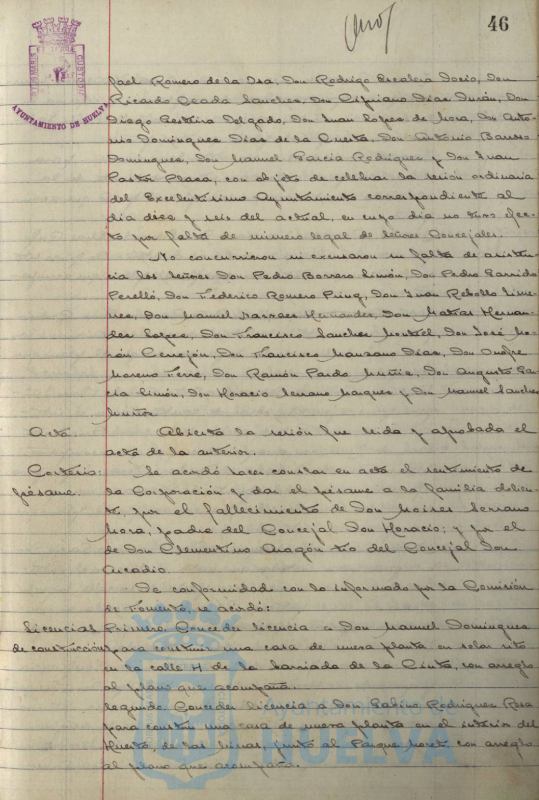 46
AYUNTAMIENTO DE HUELVA
fael Romero de la Osa, Don Rodrigo Escalera Jocio, Don
Ricardo Ocada Sanchez, Don Cipriano Dias Durán, Don
Diego Gestira Delgado, Don Juan Lopez de Mora, Don Anto-
nio Dominguez Dias de la Cuesta, Don Antonio Barroso
Dominguez, Don Manuel Garcia Rodriguez y Don Juan
Pastor Plaza, con objeto de celebrar la sesión ordinaria
del Excelentísimo Ayuntamiento correspondiente al
día diez y seis del actual, en cuyo día no tuvo efec-
to por falta de número legal de Señores Concejales.
No concurrieron ni excusaron su falta de asisten-
cia los Señores Don Pedro Borrero Limón, Don Pedro Garrido
Perelló, Don Federico Romero Puig, Don Juan Rebollo Jime-
nez, Don Manuel Narvaez Hernandez, Don Matías Hernan-
dez Lopez, Don Francisco Sanchez Don José Mo-
rón Cerrejón, Don Francisco Manzano Dias, Don Onofre
Moreno Don Ramón Pardo Muñiz, Don Augusto Gar-
cia Limón, Don Horacio Serrano Marquez y Don Manuel Sanchez
Muñoz
Acta. Abierta la sesión fue leida y aprobada el
acta de la anterior.
Cortesia: Se acordó hacer constar en acta el sentimiento de
pésame. la Corporación y dar el pésame a la familia dolien-
te, por el fallecimiento de Don Moises Serrano
Mora, padre del Concejal Don Horacio; y por el
de Don Clementino Aragón tio del Concejal Don
Arcadio.
De conformidad con lo informado por la Comisión
de Fomento, se acordó:
Licencias Primero. Conceder licencia a Don Manuel Dominguez
de construcción para construir una casa de nueva planta en solar sito
en la calle H de la barriada de la Cinta, con arreglo
al plano que acompaña.
Segundo. Conceder licencia a Don Sabino Rodriguez Rosa
para construir una casa de nueva planta en el interior del
Huerto, de las junto al Parque con arreglo
al plano que acompaña.
Ayuntamiento de
HUELVA